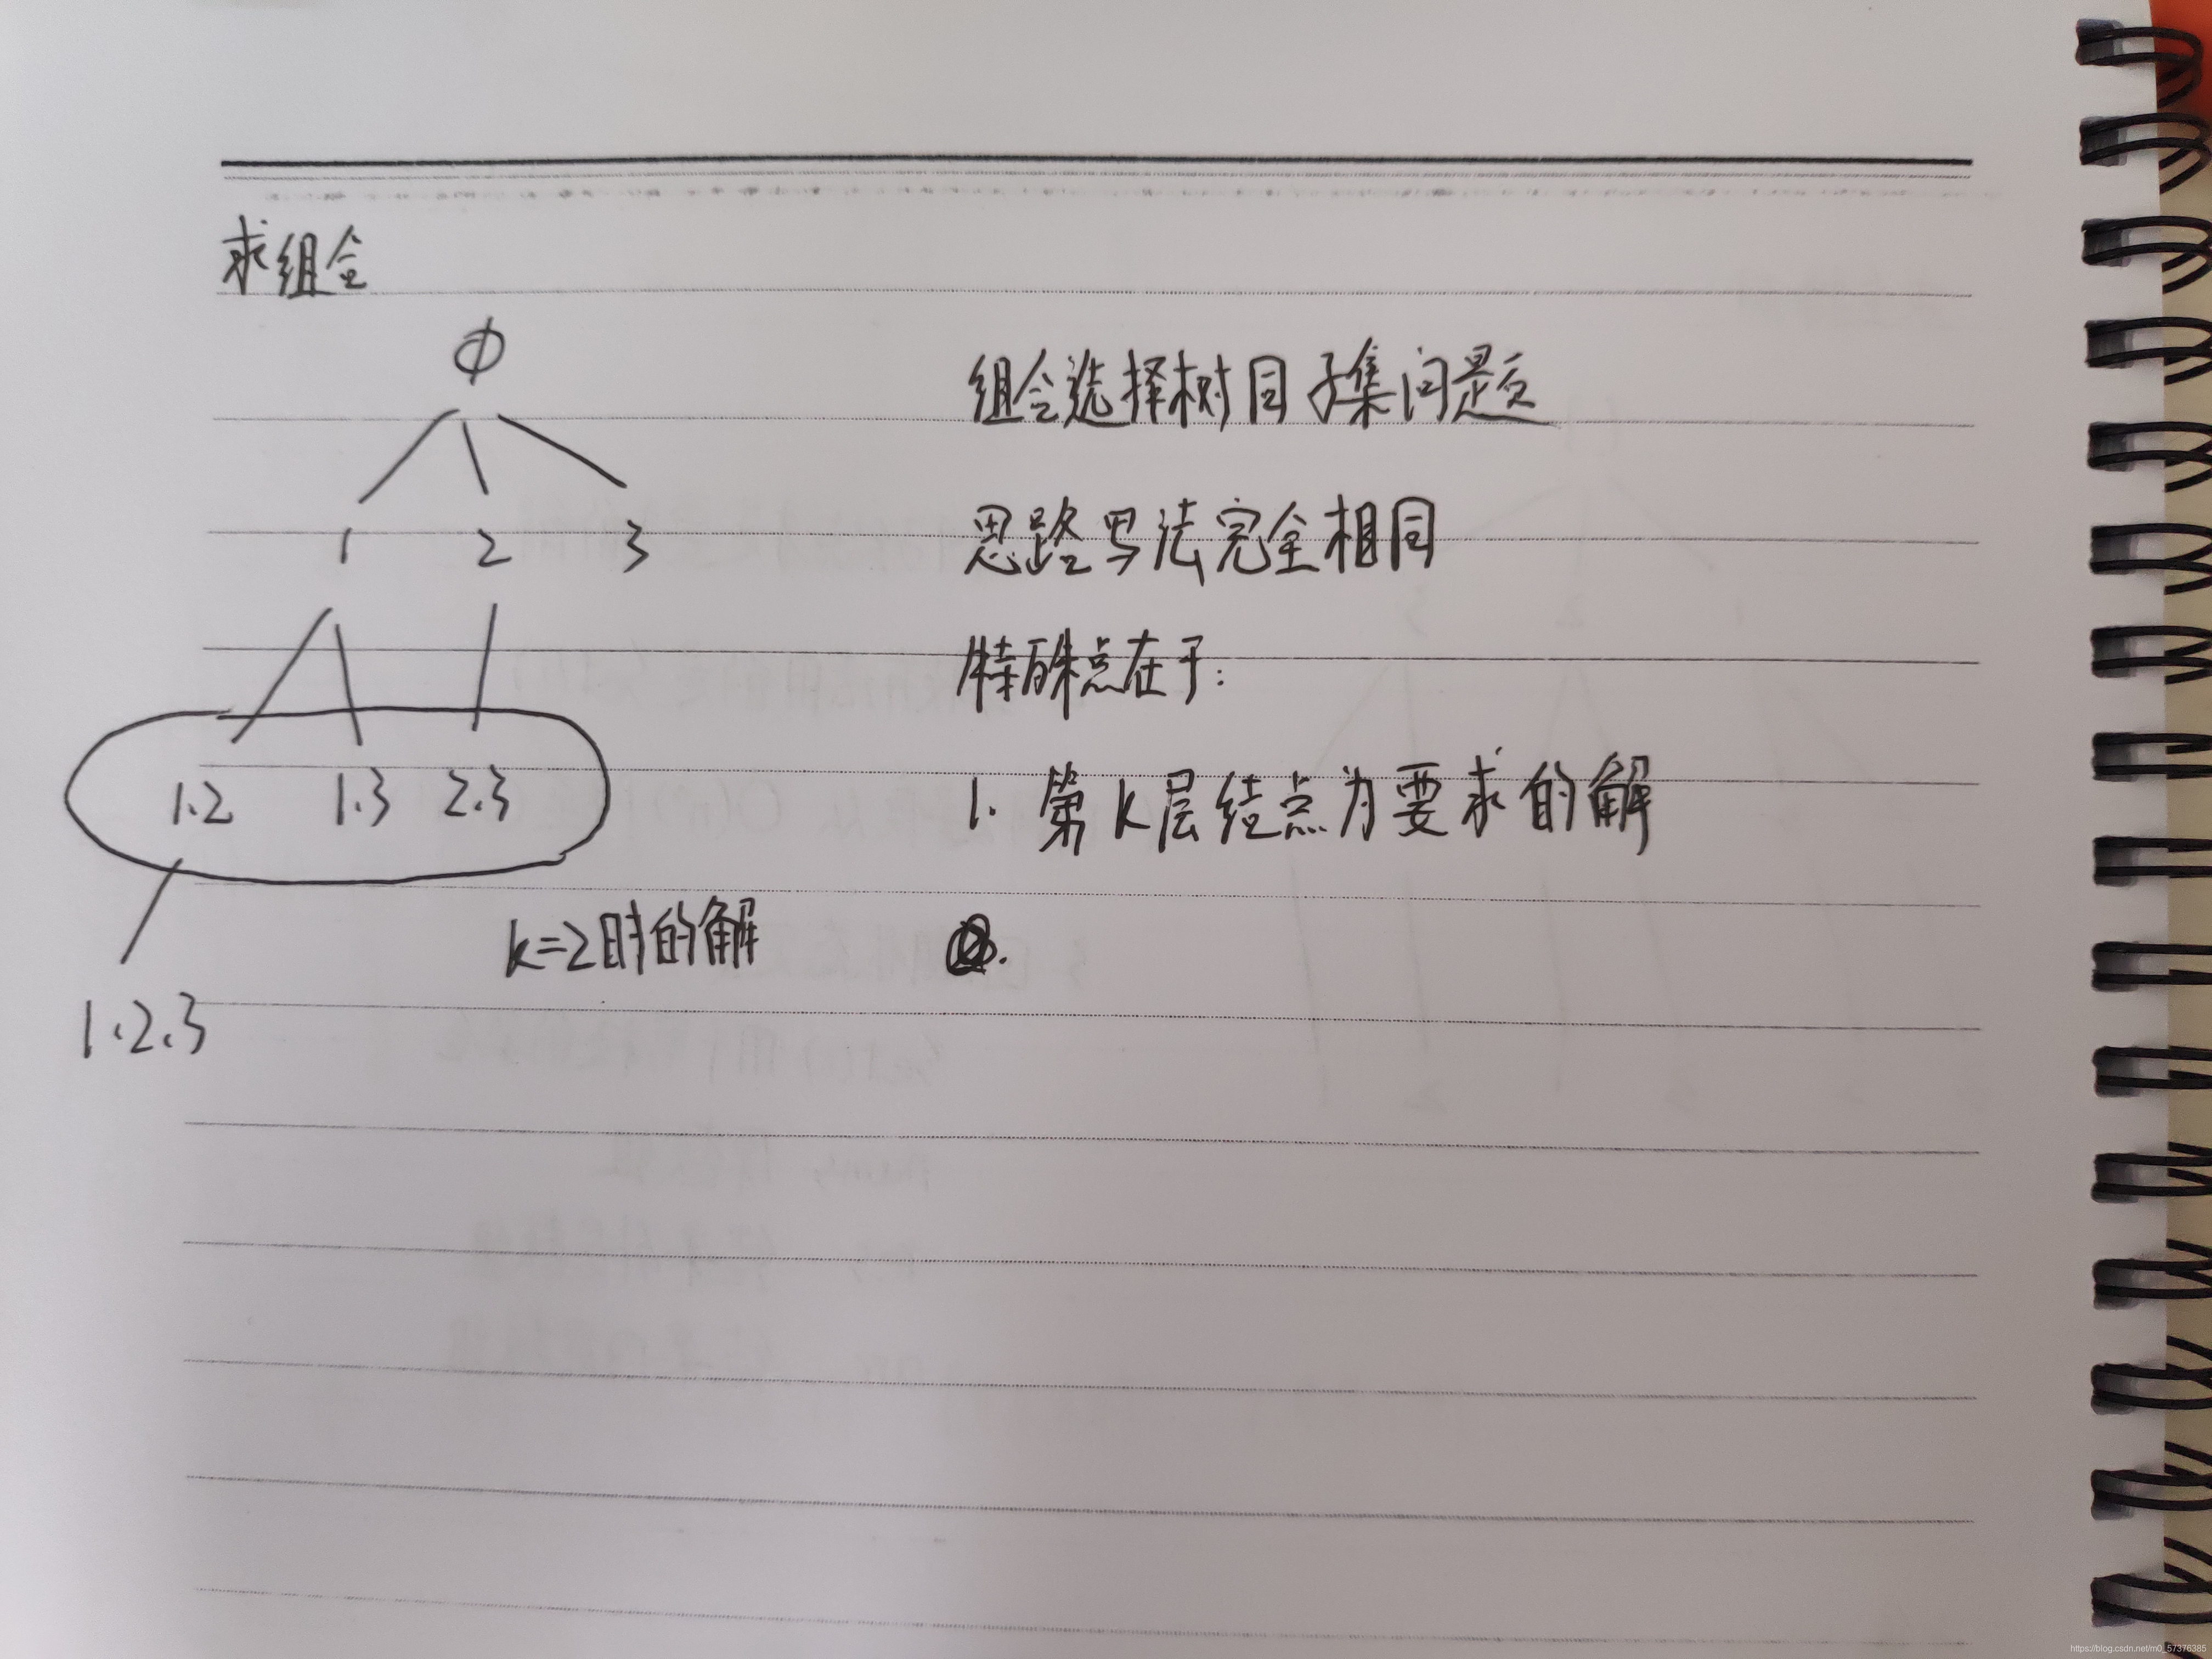 求组合
Φ
1 2 3
1.2 1.3 2.3
k=2时的解
1.2.3
组合选择树同子集问题
思路写法完全相同
特殊点在于：
1. 第k层结点为要求的解
https://blog.csdn.net/m0_57376385